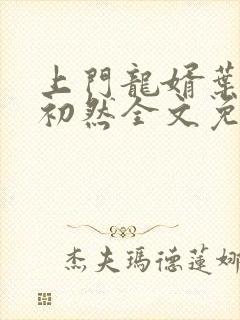 上門龍婿葉
初然全文免
杰夫瑪德蓮娜